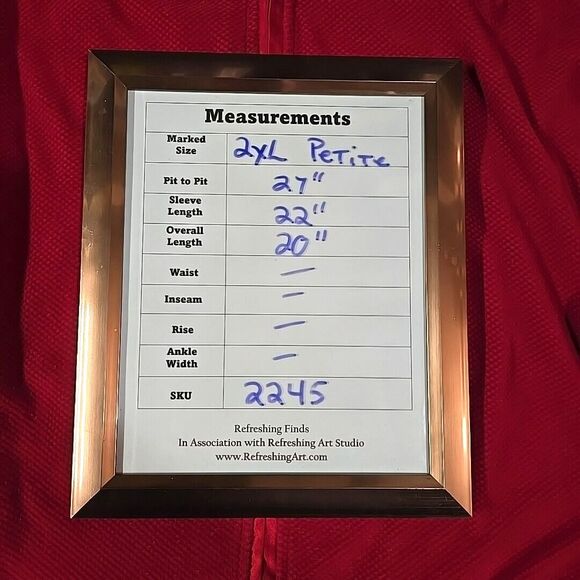 Measurements
Marked Size 2XL Petite
Pit to Pit 27"
Sleeve Length 22"
Overall Length 20"
Waist —
Inseam —
Rise —
Ankle Width —
SKU 2245
Refreshing Finds
In Association with Refreshing Art Studio
www.RefreshingArt.com